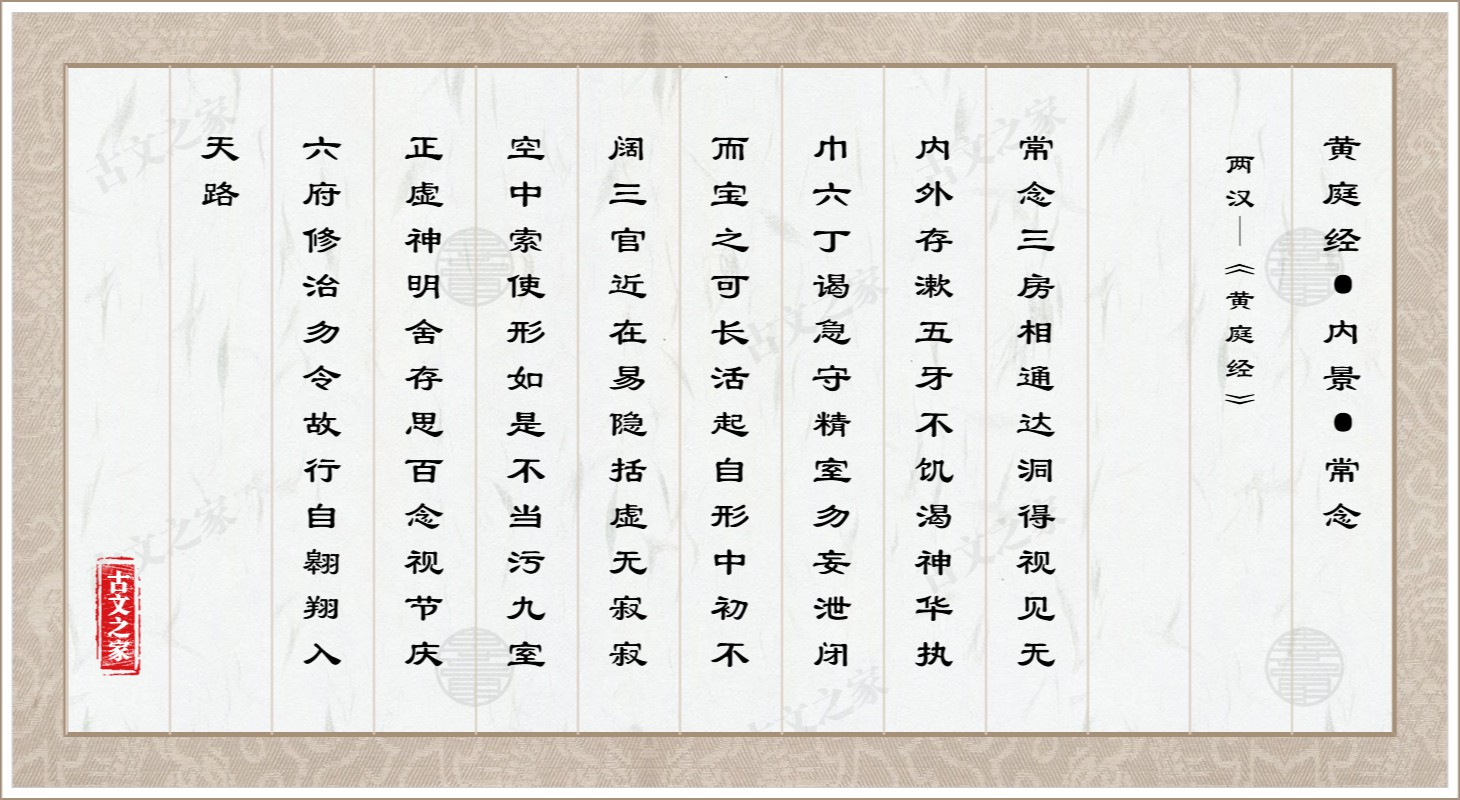 黄庭经●内景●常念
两汉—《黄庭经》
常念三房相通达洞得视见无
内外存漱五牙不饥渴神华执
巾六丁谒急守精室勿妄泄闭
而宝之可长活起自形中初不
阔三官近在易隐括虚无寂寂
空中索使形如是不当污九室
正虚神明舍存思百念视节庆
六府修治勿令故行自翱翔入
天路
古文之家
古文之家
古文之家
古文之家
古文之家
古文之家
古文之家